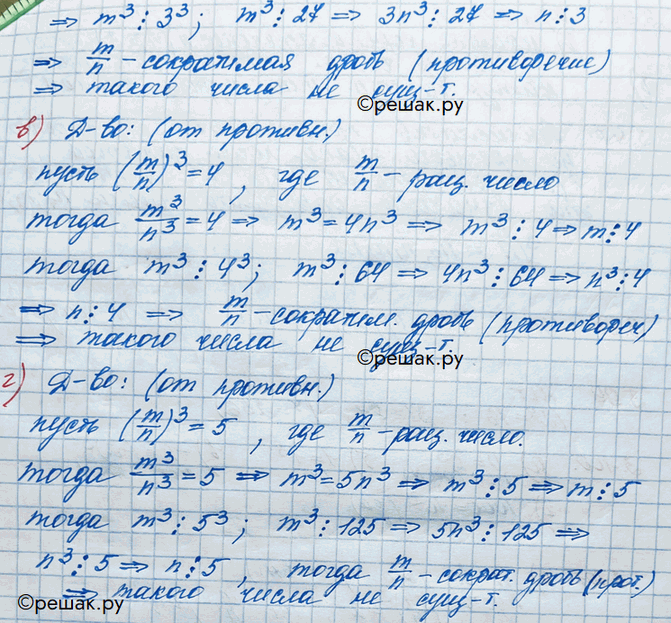 ⇒ m³ ⋮ 3³; m³ ⋮ 27 ⇒ 3n³ ⋮ 27 ⇒ n ⋮ 3
⇒ m/n – сократимая дробь (противоречие)
⇒ такого числа не сущ-т.
©решак.ру
в) Д-во: (от противн.)
пусть (m/n)³ = 4, где m/n – рац. число
тогда m³/n³ = 4 ⇒ m³ = 4n³ ⇒ m³ ⋮ 4 ⇒ m ⋮ 4
тогда m³ ⋮ 4³; m³ ⋮ 64 ⇒ 4n³ ⋮ 64 ⇒ n³ ⋮ 4
⇒ n ⋮ 4 ⇒ m/n – сократим. дробь (противореч)
⇒ такого числа не сущ-т.
©решак.ру
г) Д-во: (от противн.)
пусть (m/n)³ = 5, где m/n – рац. число.
тогда m³/n³ = 5 ⇒ m³ = 5n³ ⇒ m³ ⋮ 5 ⇒ m ⋮ 5
тогда m³ ⋮ 5³; m³ ⋮ 125 ⇒ 5n³ ⋮ 125 ⇒
n³ ⋮ 5 ⇒ n ⋮ 5, тогда m/n – сократ. дробь (прот.)
⇒ такого числа не сущ-т.
©решак.ру